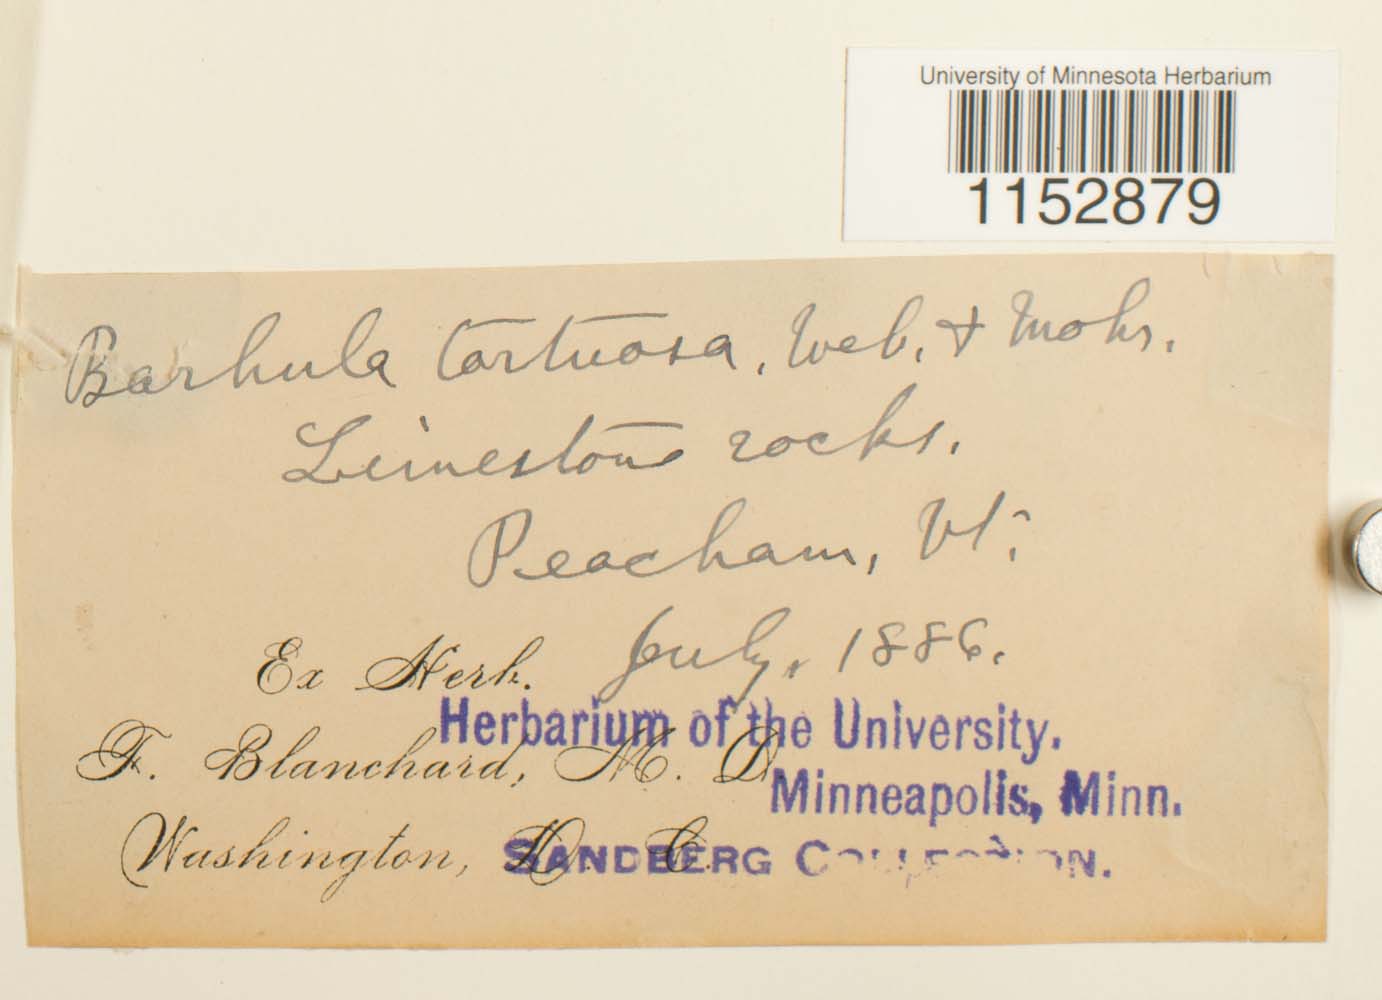 University of Minnesota Herbarium
1152879
Barbula tortuosa, Web. & Mohr.
Limestone rocks.
Peacham, Vt.
July, 1886.
Ex Herb.
Herbarium of the University.
F. Blanchard, M. D.
Minneapolis, Minn.
Washington, D. C.
SANDBERG COLLECTION.